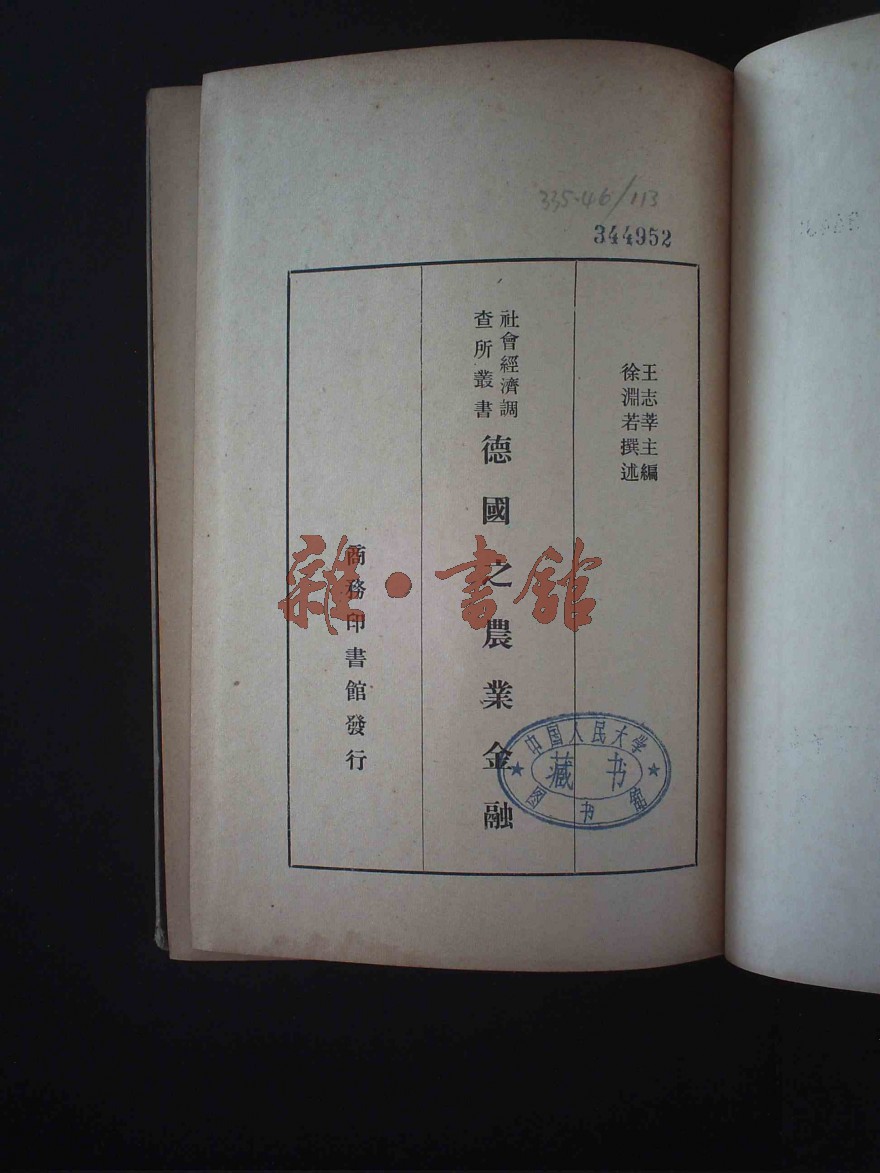 335.46/113
344952
王志莘主編
徐淵若撰述
社會經濟調
查所叢書
德國之農業金融
商務印書館發行
雜·書館
中国人民大学
藏书
图书馆